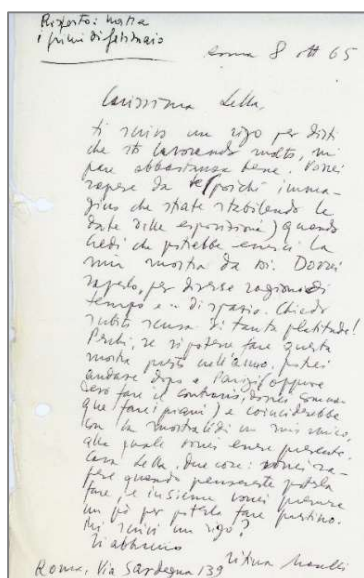 Risposto: mostra
i primi di febbraio
Roma 8 ott 65
Carissima Lella,
ti scrivo un rigo per dirti
che sto lavorando molto, mi
pare abbastanza bene. Vorrei
sapere da te (poiché imma-
gino che state stabilendo le
date delle esposizioni) quando
credi che potrebbe esserci la
mia mostra da voi. Dovrei
saperlo, per diverse ragioni di
tempo e .. di spazio. Chiedo
subito scusa di tanta
Perché, se si potesse fare questa
mostra presto nell'anno, potrei
andare dopo a Parigi (oppure
fare il contrario, dovrei comun-
que fare i piani) e coinciderebbe
con la mostra di un mio amico,
alla quale vorrei essere presente.
Cara Lella, due cose: vorrei sa-
pere quando pensereste poterla
fare, e insieme vorrei premere
un pò per poterla fare prestino.
Mi scrivi un rigo?
Ti abbraccio
Titina Maselli
Roma, Via Sardegna 139